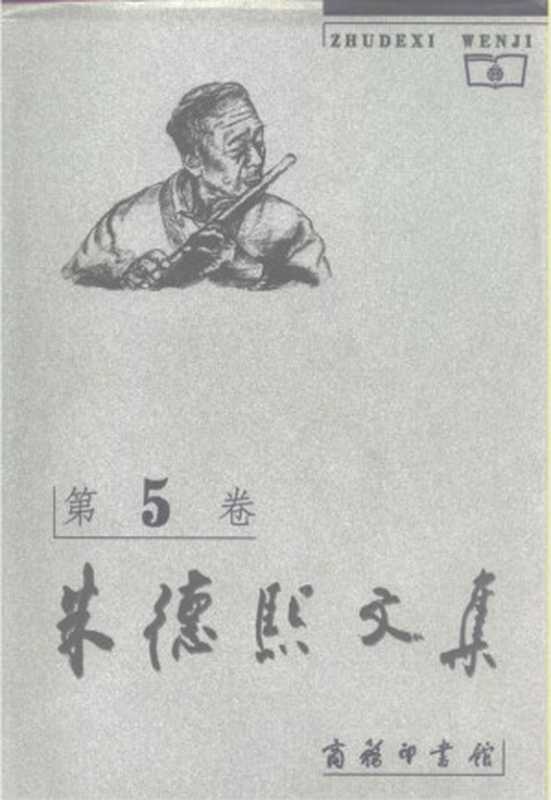 ZHUDEXI WENJI
第 5 卷
朱德熙文集
商務印書館